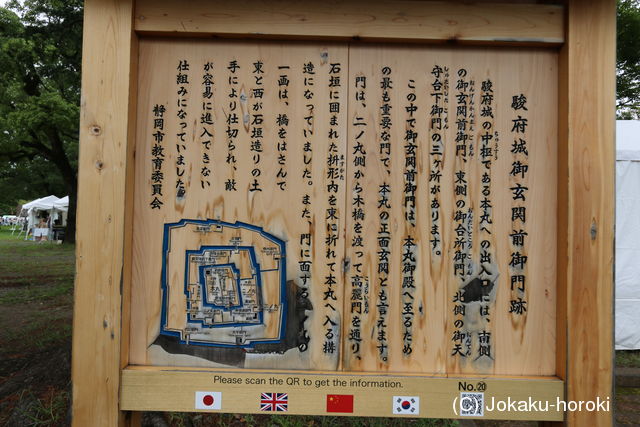 駿府城御玄関前御門跡
駿府城の中枢である本丸への出入口には、南側
の御玄関前御門、東側の御台所御門、北側の御天
守台下御門の三ヶ所があります。
この中で御玄関前御門は、本丸御殿へ至るため
の最も重要な門で、本丸の正面玄関とも言えます。
門は、二ノ丸側から木橋を渡って高麗門を通り、
石垣に囲まれた枡形内を東に折れて本丸へ入る構
造になっていました。また、門に面する
の
一画は、橋をはさんで
東と西が石垣造りの土
手により仕切られ、敵
が容易に進入できない
仕組みになっていました。
静岡市教育委員会
Please scan the QR to get the information.
No.20
(C)Jokaku-horoki